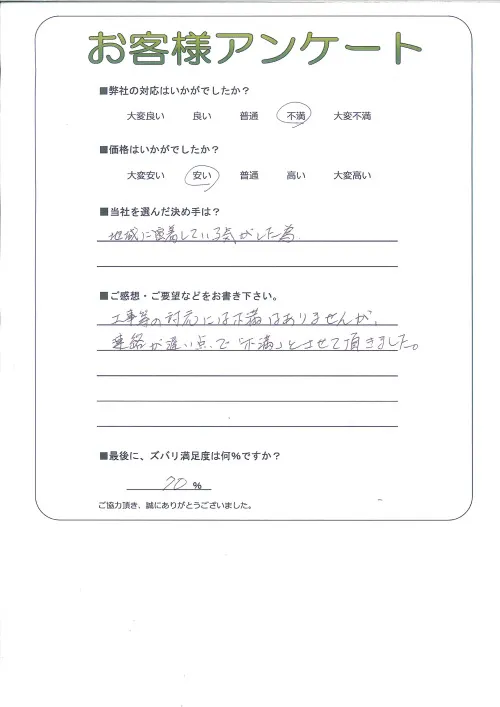 お客様アンケート
■弊社の対応はいかがでしたか？
大変良い 良い 普通 不満 大変不満
■価格はいかがでしたか？
大変安い 安い 普通 高い 大変高い
■当社を選んだ決め手は？
地域に密着している気がした為.
■ご感想・ご要望などをお書き下さい。
工事等の対応には不満はありませんが、
連絡が遅い点で「不満」とさせて頂きました。
■最後に、ズバリ満足度は何%ですか？
70 %
ご協力頂き、誠にありがとうございました。